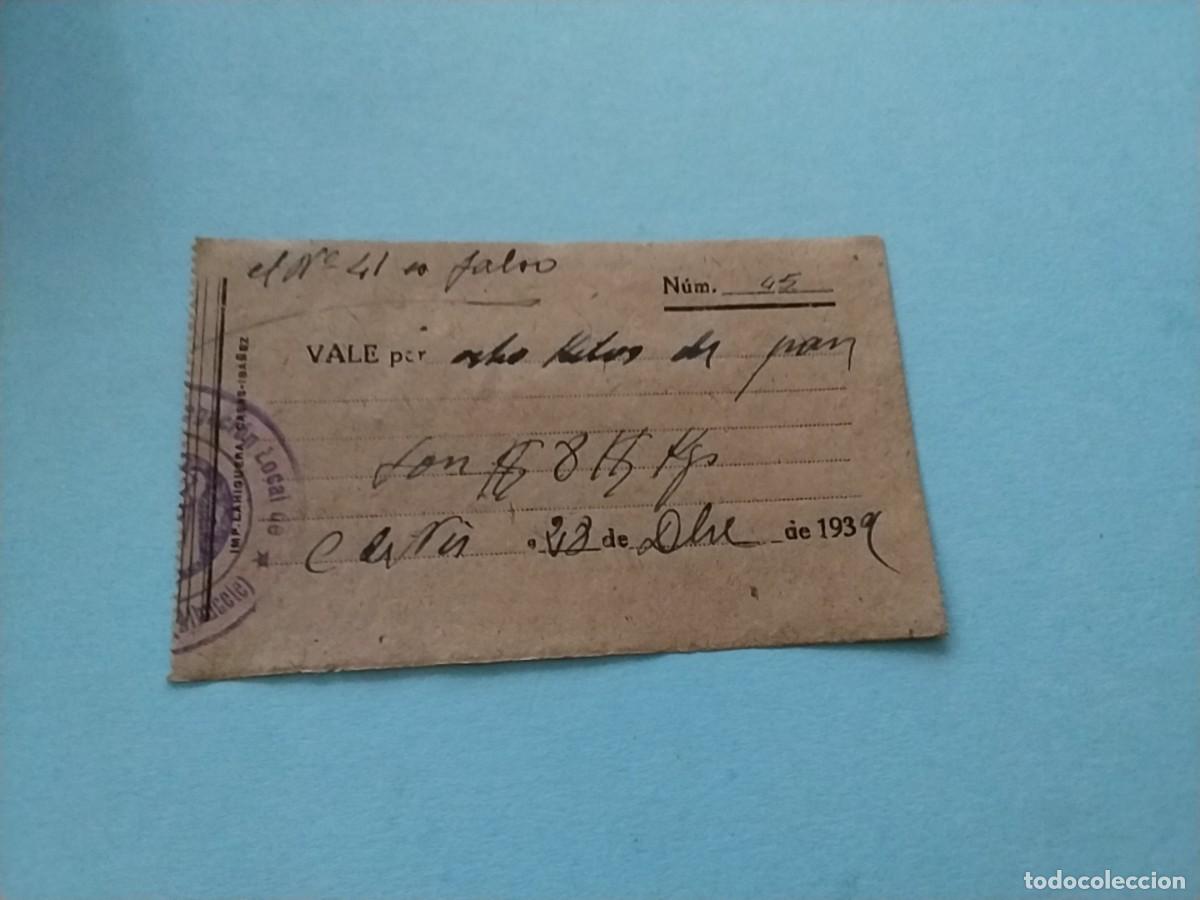 el Nº 41 es falso
Núm. 45
VALE por ocho kilos de pan
Son # 8 # Kgs
a 23 de Dbre de 1939
IMP. LAHIGUERA, CASAS-IBÁÑEZ
Local de ★
(Albacete)
todocoleccion